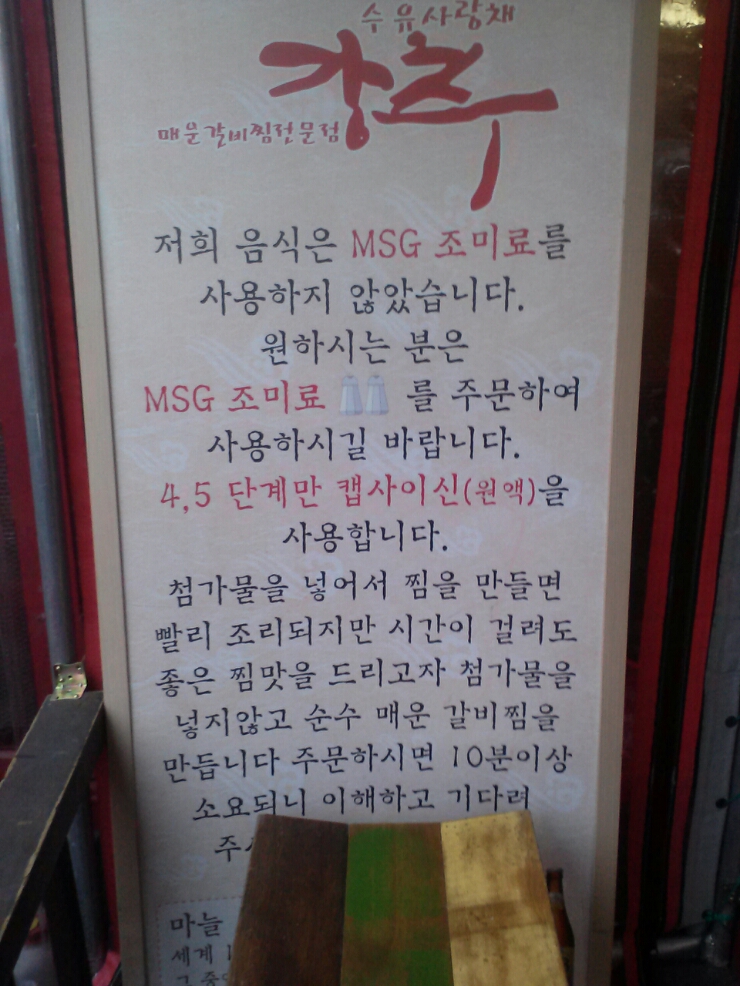 수유사랑채
강촌
매운갈비찜전문점
저희 음식은 MSG 조미료를
사용하지 않았습니다.
원하시는 분은
MSG 조미료 를 주문하여
사용하시길 바랍니다.
4,5 단계만 캡사이신(원액)을
사용합니다.
첨가물을 넣어서 찜을 만들면
빨리 조리되지만 시간이 걸려도
좋은 찜맛을 드리고자 첨가물을
넣지않고 순수 매운 갈비찜을
만듭니다 주문하시면 10분이상
소요되니 이해하고 기다려
마늘
세계